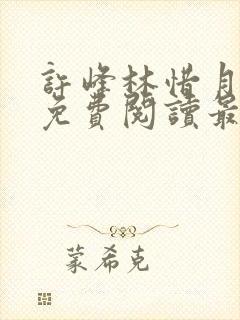 許峰林惜月
免費閱讀最
蒙希克